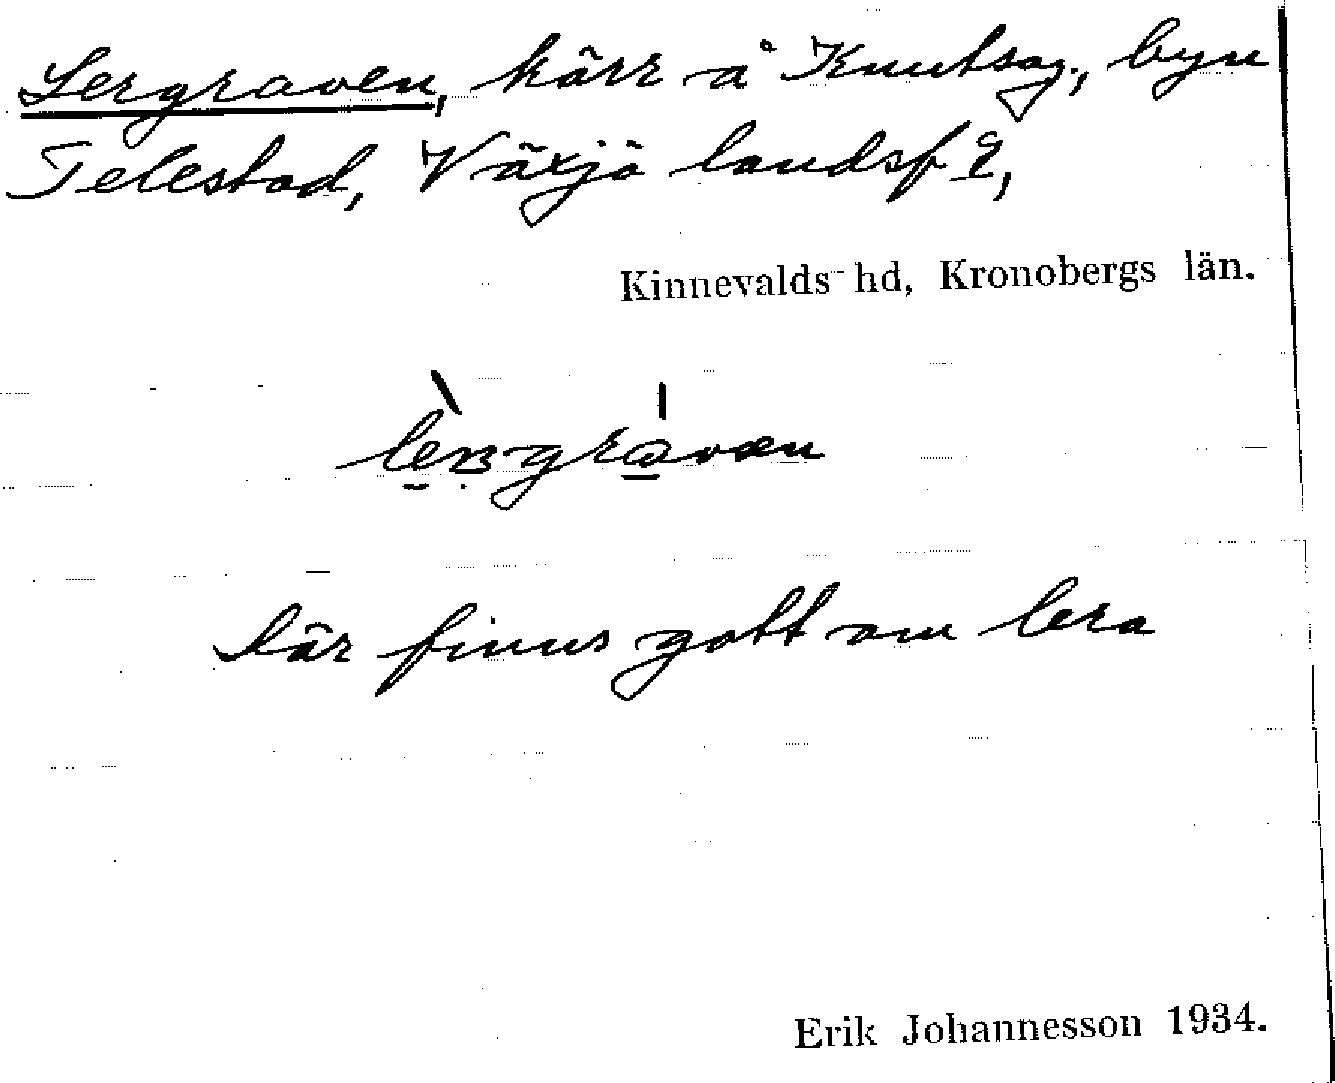 Lergraven, kärr å Knutsg., byn
Telestad, Växjö landsf
Kinnevalds hd, Kronobergs län.
där finns gott om lera
Erik Johannesson 1934.